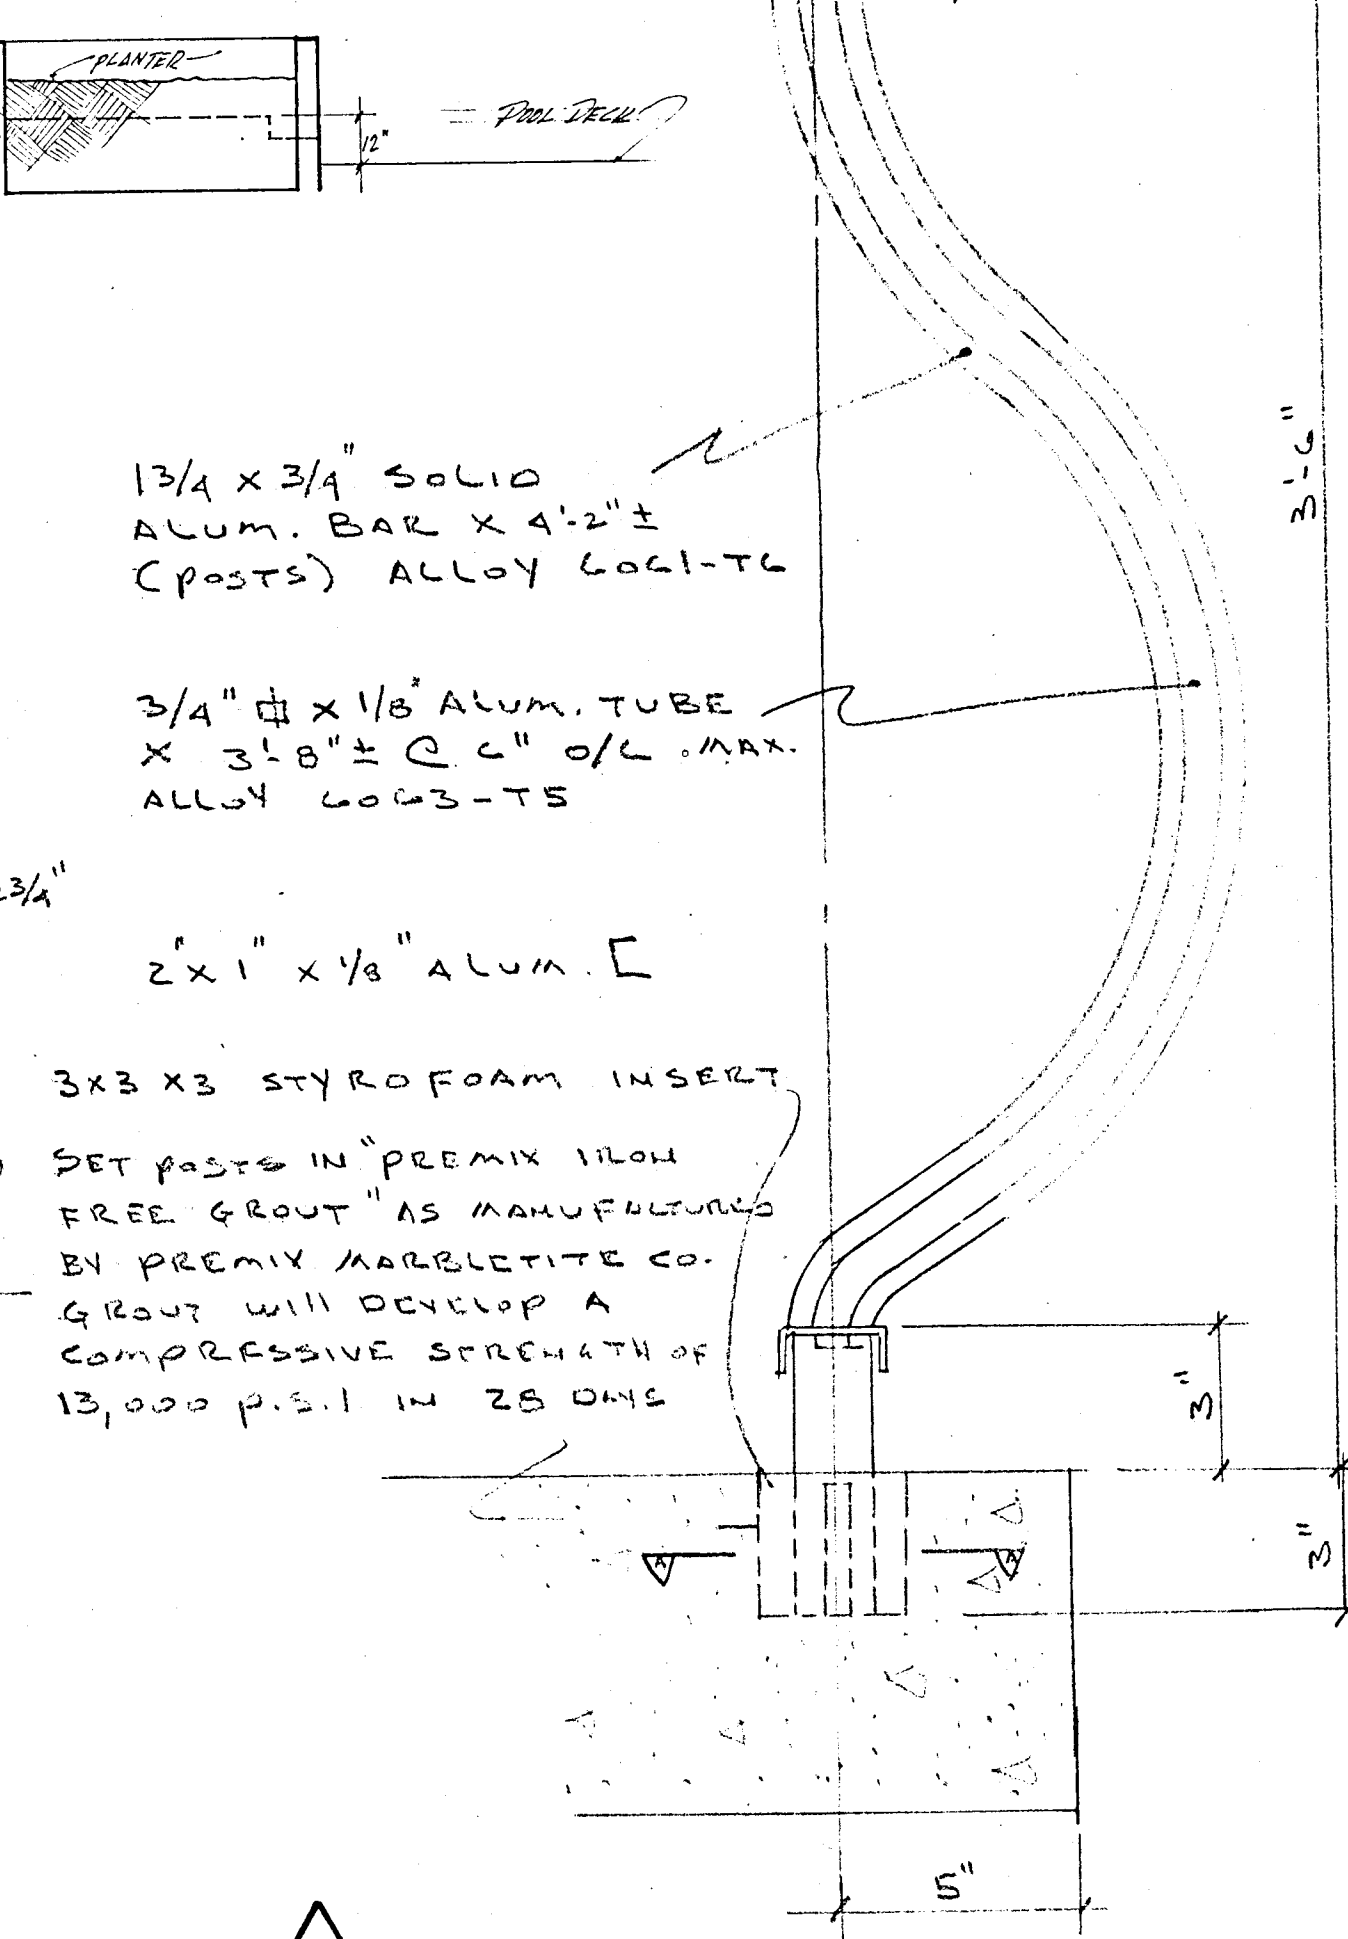 PLANTER
12"
POOL DECK
1 3/4 x 3/4" SOLID
ALUM. BAR X 4'-2" ±
(POSTS) ALLOY 6061-T6
3'-6"
3/4" x 1/8" ALUM. TUBE
X 3'-8" ± @ 6" O/C .MAX.
ALLOY 6063-T5
3/4"
2" x 1" x 1/8" ALUM. [
3x3 x3 STYROFOAM INSERT
SET POSTS IN "PREMIX IRON
FREE GROUT" AS MANUFACTURED
BY PREMIX MARBLETITE CO.
GROUT WILL DEVELOP A
COMPRESSIVE STRENGTH OF
13,000 P.S.I IN 28 DAYS
3"
3"
A A
5"